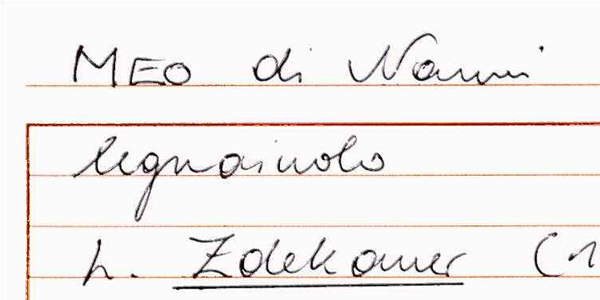 MEO di Nanni
legnaiuolo
L. Zdekauer (1